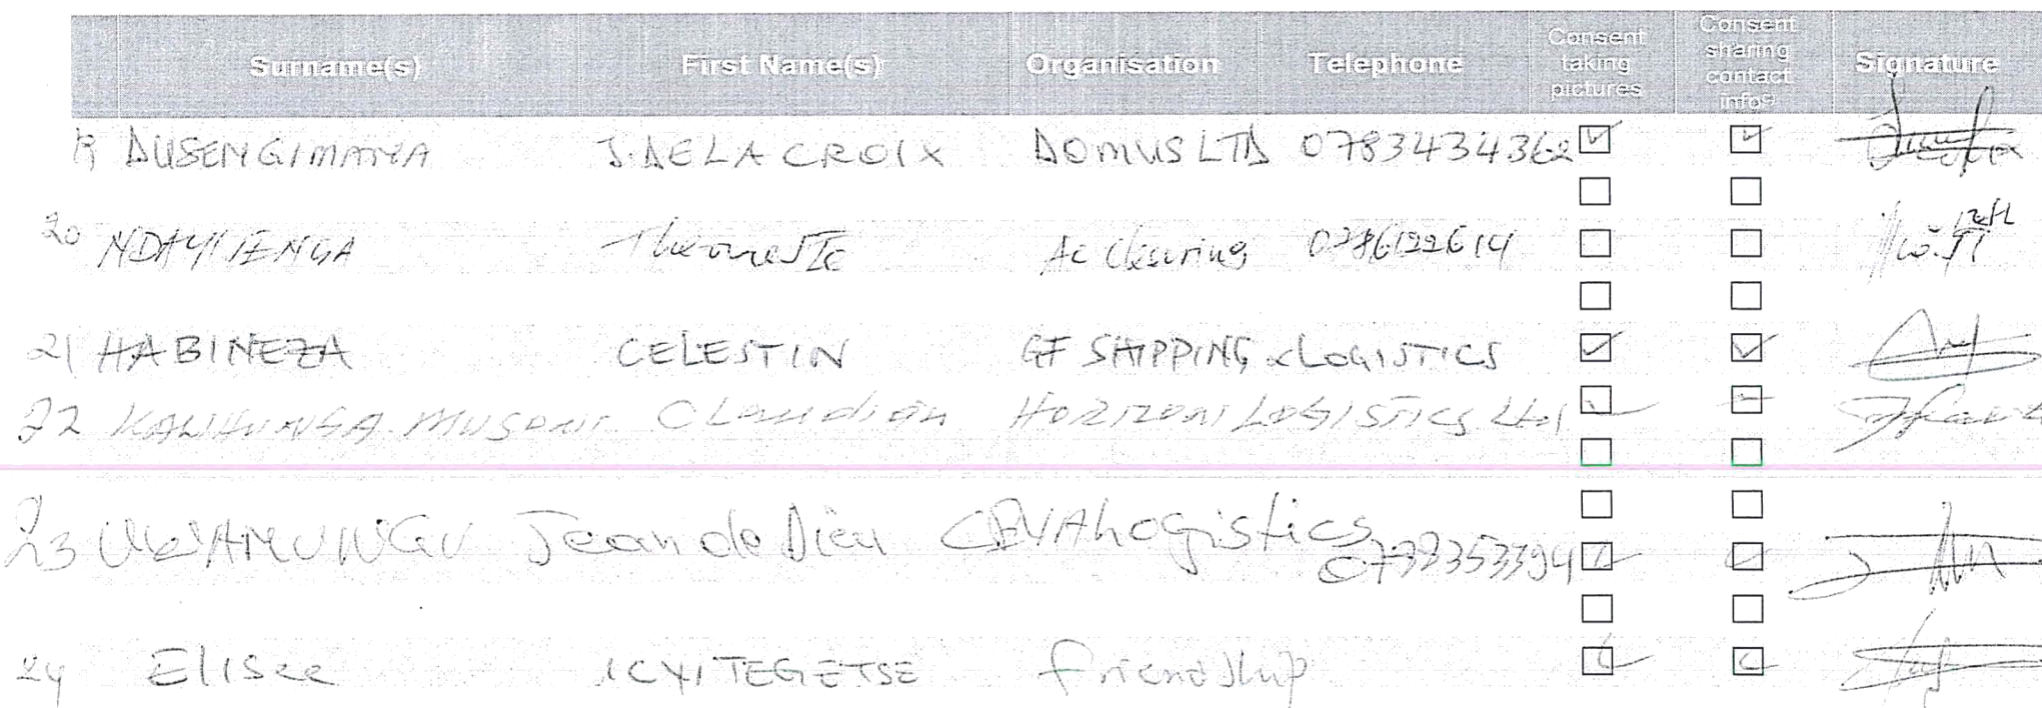 Surname(s) First Name(s) Organisation Telephone Consent taking pictures Consent sharing contact infos Signature
19 DUSENGIMANA J.DELACROIX DOMUS LTD 0783434362
20 NDAYISENGA Theoneste Ac Clearing
21 HABINEZA CELESTIN GF SHIPPING & LOGISTICS
22 MUSONI Claudian HORIZON LOGISTICS Ltd
23 UWAMUNGU Jean de Dieu CEVA Logistics
24 Elisee ICYITEGETSE friendship